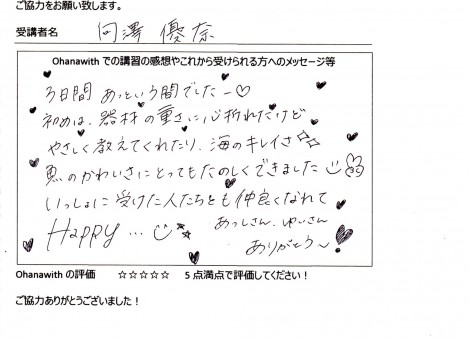 ご協力をお願い致します。
受講者名 向澤 優奈
Ohanawith での講習の感想やこれから受けられる方へのメッセージ等
3日間 あっという間でしたー♡
初めは、器材の重さに心折れたけど
やさしく教えてくれたり、海のキレイさ
魚のかわいさにとってもたのしくできました
いっしょに受けた人たちとも仲良くなれて
Happy …
あっしさん、ゆいさん
ありがとう〜!
Ohanawith の評価 ☆☆☆☆☆ 5 点満点で評価してください！
ご協力ありがとうございました！